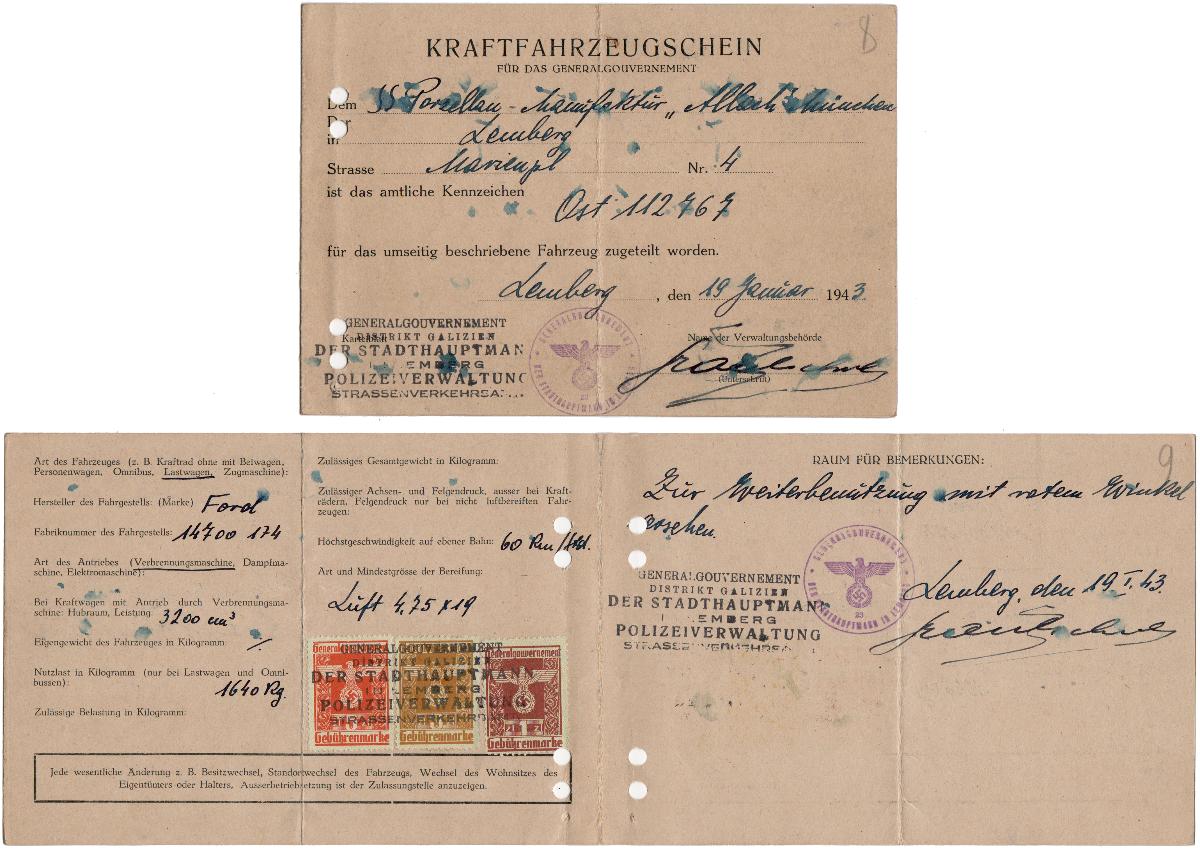 8
KRAFTFAHRZEUGSCHEIN
FÜR DAS GENERALGOUVERNEMENT
Dem SS Porzellan-Manufaktur „Allach" München
Der
in Lemberg
Strasse Marienpl Nr. 4
ist das amtliche Kennzeichen
Ost 112767
für das umseitig beschriebene Fahrzeug zugeteilt worden.
Lemberg, den 19 Januar 1943
GENERALGOUVERNEMENT
DISTRIKT GALIZIEN
DER STADTHAUPTMANN
LEMBERG
POLIZEIVERWALTUNG
STRASSENVERKEHRSA
Karteiblatt
GENERALGOUVERNEMENT
DER STADTHAUPTMANN IN
23
Name der Verwaltungsbehörde
(Unterschrift)
Art des Fahrzeuges (z. B. Kraftrad ohne mit Beiwagen,
Personenwagen, Omnibus, Lastwagen, Zugmaschine):
Hersteller des Fahrgestells: (Marke) Ford
Fabriknummer des Fahrgestells: 14700 174
Art des Antriebes (Verbrennungsmaschine, Dampfma-
schine, Elektromaschine):
Bei Kraftwagen mit Antrieb durch Verbrennungsma-
schine: Hubraum, Leistung: 3200 cm³
Eigengewicht des Fahrzeuges in Kilogramm:
Nutzlast in Kilogramm (nur bei Lastwagen und Omni-
bussen): 1640 Kg.
Zulässige Belastung in Kilogramm:
Zulässiges Gesamtgewicht in Kilogramm:
Zulässiger Achsen- und Felgendruck, ausser bei Kraft-
rädern, Felgendruck nur bei nicht luftbereiften Fahr-
zeugen:
Höchstgeschwindigkeit auf ebener Bahn: 60 Km/Std.
Art und Mindestgrösse der Bereifung:
Luft 4,75 x 19
Generalgouvernement
GENERALGOUVERNEMENT
DISTRIKT GALIZIEN
DER STADTHAUPTMANN
LEMBERG
POLIZEIVERWALTUNG
STRASSENVERKEHRSAMT
Gebührenmarke
Gebührenmarke
Gebührenmarke
Jede wesentliche Änderung z. B. Besitzwechsel, Standortwechsel des Fahrzeugs, Wechsel des Wohnsitzes des
Eigentümers oder Halters, Ausserbetriebsetzung ist der Zulassungstelle anzuzeigen.
9
RAUM FÜR BEMERKUNGEN:
Zur Weiterbenützung mit rotem Winkel
versehen.
GENERALGOUVERNEMENT
DISTRIKT GALIZIEN
DER STADTHAUPTMANN
LEMBERG
POLIZEIVERWALTUNG
STRASSENVERKEHRSA
GENERALGOUVERNEMENT
DER STADTHAUPTMANN IN
23
Lemberg, den 19.I.43.